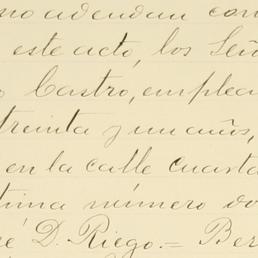 no adeudan con
este acto, los Seño
Castro, emplea
treinta y un años,
en la calle cuarta
tima número do
é D. Riego.= Ber